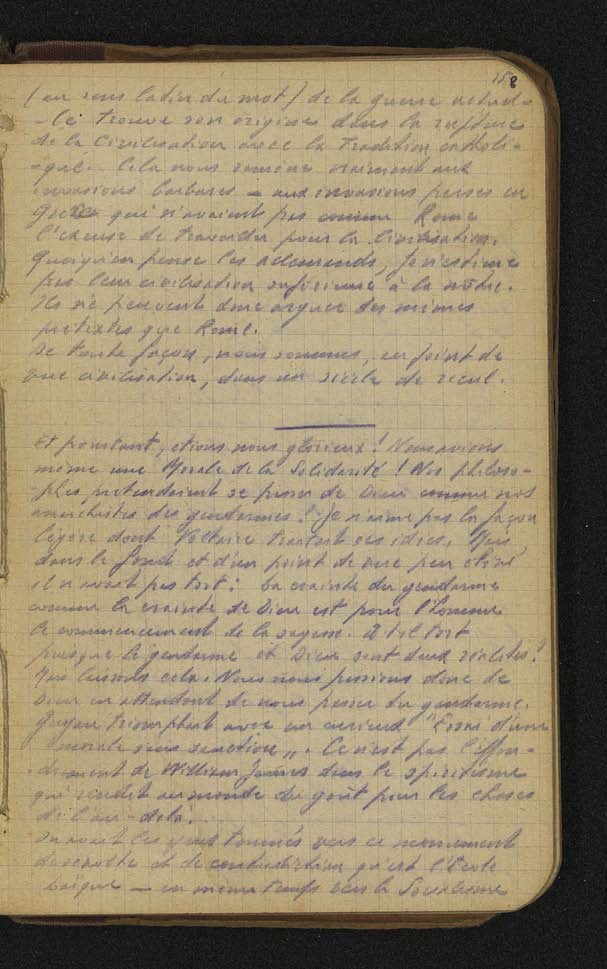 158
(au sens latin du mot) de la guerre actuel-
-le trouve son origine dans la rupture
de la Civilisation avec la Tradition catholi-
-que. Cela nous ramène vraiment aux
invasions barbares — aux invasions perses en
Grèce qui n'avaient pas comme Rome
l'excuse de travailler pour la Civilisation.
Quoiqu'en pense les allemands, je n'estime
pas leur civilisation supérieure à la nôtre.
Ils ne peuvent donc arguer des mêmes
prétextes que Rome.
De toute façon, nous sommes, au point de
vue civilisation, dans un siècle de recul.
Et pourtant, étions nous glorieux ! Nous avions
même une Morale de la Solidarité ! Nos philoso-
-phes prétendaient se passer de Dieu comme nos
anarchistes des gendarmes ! Je n'aime pas la façon
légère dont Voltaire traitait ces idées. Mais
dans le fond et d'un point de vue peu élevé
il n'avait pas tort : La crainte du gendarme
comme la crainte de Dieu est pour l'homme
le commencement de la sagesse. A-t-il tort
puisque le gendarme et Dieu sont deux réalités !
Mais laissons cela. Nous nous passions donc de
Dieu en attendant de nous passer du gendarme.
Guyau triomphait avec un curieux "Essai d'une
morale sans sanction„. Ce n'est pas l'effon-
-drement de William James dans le spiritisme
qui rendit au monde du goût pour les choses
de l'au-delà.
On avait les yeux tournés vers ce mouvement
de révolte et de contradiction qu'est l'École
laïque — en même temps vers le Socialisme